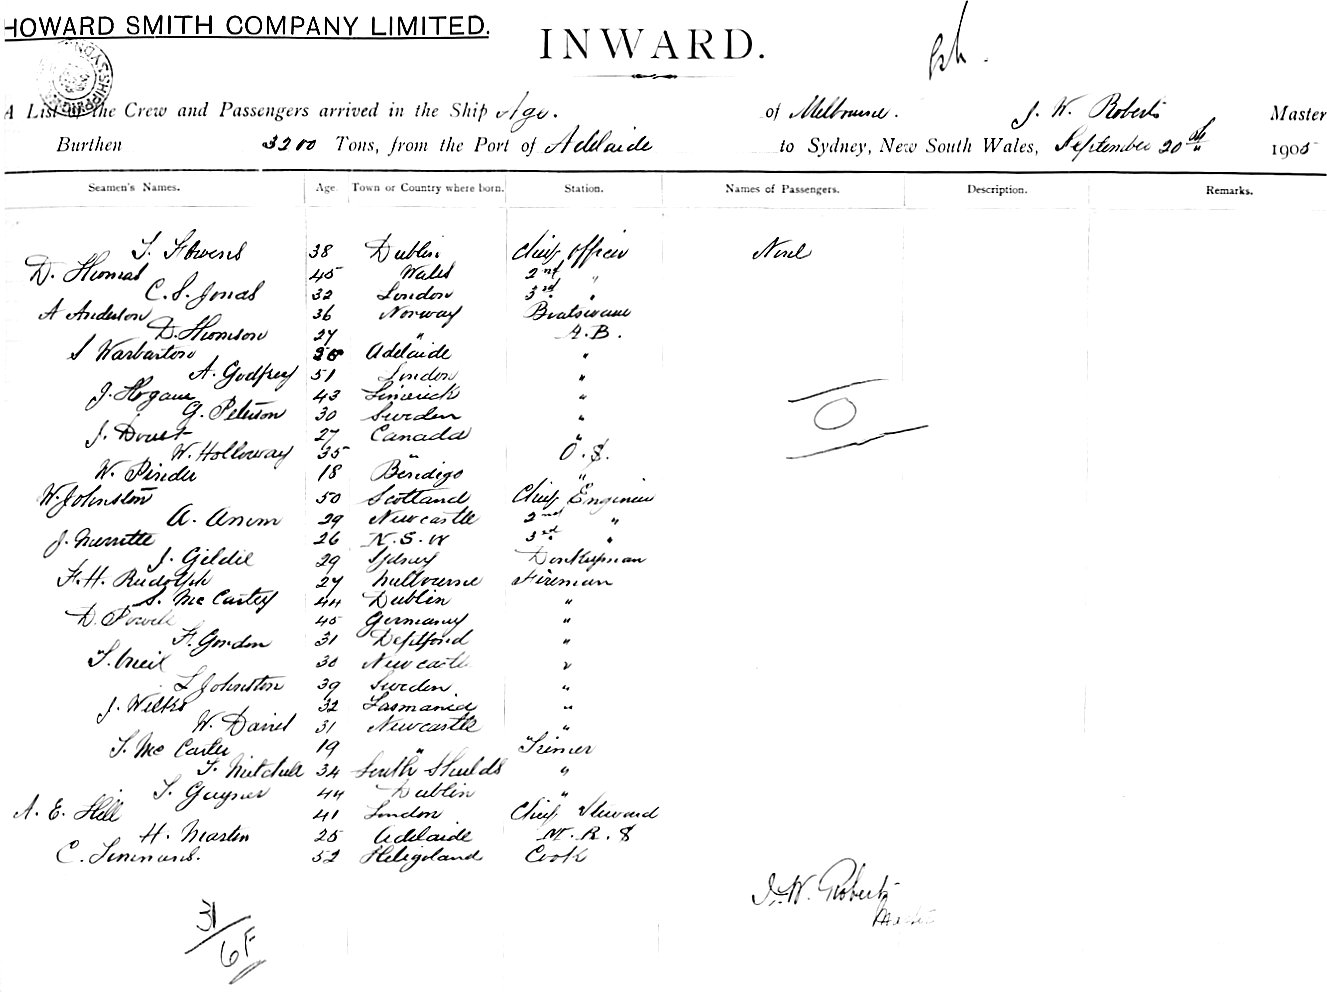 HOWARD SMITH COMPANY LIMITED.
INWARD.
A List of the Crew and Passengers arrived in the Ship Age. of Melbourne. J. W. Roberts Master
Burthen 3200 Tons, from the Port of Adelaide to Sydney, New South Wales, September 20th 1905
Seamen's Names. Age. Town or Country where born. Station. Names of Passengers. Description. Remarks.
38 Dublin Chief Officer None
D. Thomas 45 Wales 2nd "
C. S. Jonas 32 London 3rd "
A Anderson 36 Norway Boatswain
D. Thomson 27 " A.B.
S Warburton Adelaide "
A. Godfrey 51 London "
J. Hogan 43 Limerick "
G. Peterson 30 Sweden "
J. Doust 27 Canada "
W. Holloway 35 " O.S.
W. Pinder 18 Bendigo "
W. Johnston 50 Scotland Chief Engineer
A. 29 Newcastle 2nd "
J. 26 N.S.W 3rd "
J. Gildie 29 Sydney Donkeyman
F. H. Rudolph 27 Melbourne Fireman
S. McCartey 44 Dublin "
D. Powell 45 Germany "
F. Gordon 31 Deptford "
30 Newcastle "
L Johnston 39 Sweden "
J. Wilks 32 Tasmania "
W. Daniel 31 Newcastle "
T. McCarter 19 " Trimer
T. Mitchell 34 South Shields "
T. Guyner 44 Dublin "
A. E. Hill 41 London Chief Steward
H. Martin 25 Adelaide M.R.S
C. 52 Heligoland Cook
J. W. Roberts
Master
31/6F